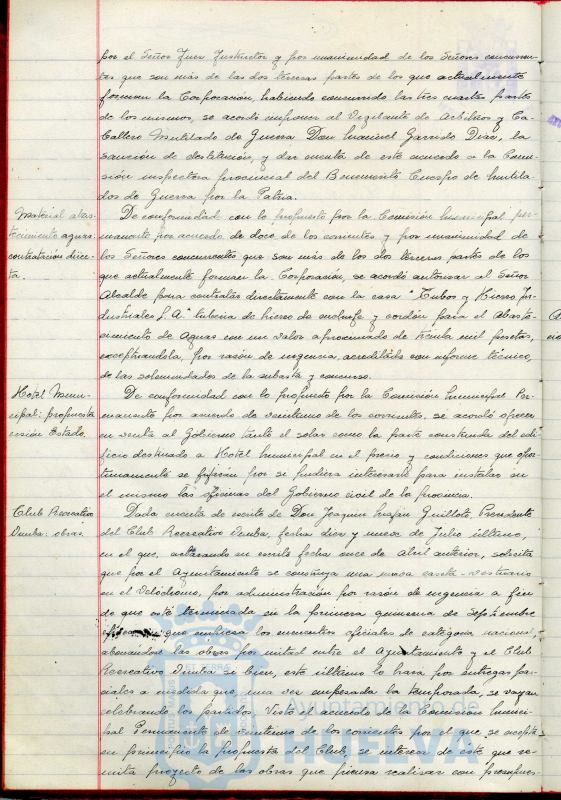 por el Señor Juez Instructor y por unanimidad de los Señores concurren-
tes que son más de las dos terceras partes de los que actualmente
forman la Corporación, habiendo concurrido las tres cuartas partes
de los mismos, se acordó imponer al Vigilante de Arbitrios y Ca-
ballero Mutilado de Guerra Don Manuel Garrido Díaz, la
sanción de destitución, y dar cuenta de este acuerdo a la Comi-
sión inspectora provincial del Benemérito Cuerpo de Mutila-
dos de Guerra por la Patria.
Material abas-
tecimiento aguas:
contratación direc-
ta.
De conformidad con lo propuesto por la Comisión Municipal per-
manente por acuerdo de doce de los corrientes y por unanimidad de
los Señores concurrentes que son más de las dos terceras partes de los
que actualmente forman la Corporación, se acordó autorizar al Señor
Alcalde para contratar directamente con la casa "Tubos y Hierro In-
dustriales S. A." tubería de hierro de enchufe y cordón para el abaste-
cimiento de Aguas con un valor aproximado de treinta mil pesetas,
exceptuándola, por razón de urgencia, acreditada con informe técnico,
de las solemnidades de la subasta y concurso.
Hotel Muni-
cipal: propuesta
cesión Estado.
De conformidad con lo propuesto por la Comisión Municipal Per-
manente por acuerdo de veintiuno de los corrientes, se acordó ofrecer
en venta al Gobierno tanto el solar como la parte construida del edi-
ficio destinado a Hotel Municipal en el precio y condiciones que opor-
tunamente se fijarán por si pudiera interesarle para instalar en
el mismo las oficinas del Gobierno civil de la provincia.
Club Recreativo
Onuba: obras.
Dada cuenta de escrito de Don Joaquín Guillote, Presidente
del Club Recreativo Onuba, fecha diez y nueve de Julio último,
en el que, aclarando su escrito fecha once de Abril anterior, solicita
que por el Ayuntamiento se construya una nueva caseta-vestuario
en el Velódromo, por administración por razón de urgencia a fin
de que esté terminada en la primera quincena de Septiembre
que empieza los encuentros oficiales de categoría nacional,
abonándose las obras por mitad entre el Ayuntamiento y el Club
Recreativo Onuba si bien, este último lo hará por entregas par-
ciales a medida que, una vez empezada la temporada, se vayan
celebrando los partidos. Visto el acuerdo de la Comisión Munici-
pal Permanente de veintiuno de los corrientes por el que, se acepta
en principio la propuesta del Club, se interesa de éste que re-
mita proyecto de las obras que piensa realizar con presupues-
Ayuntamiento de
HUELVA